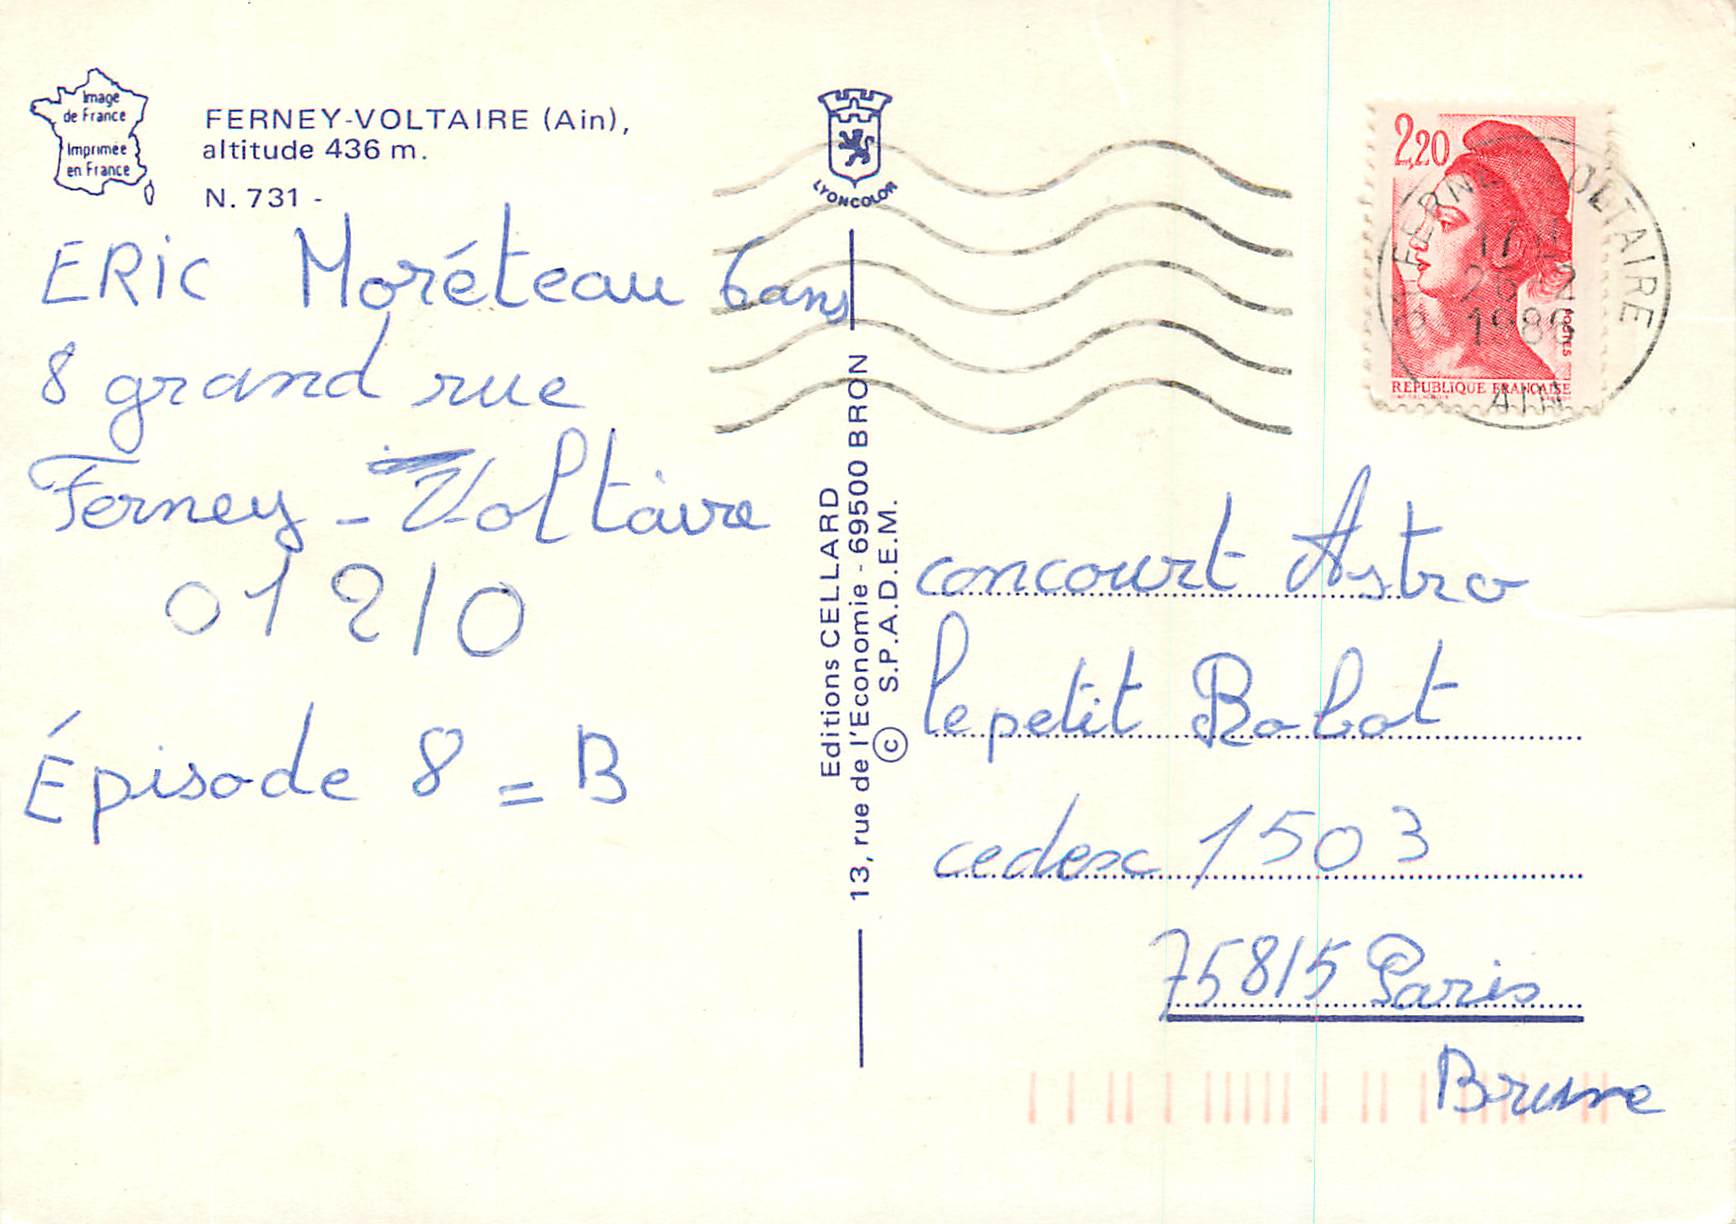 Image
de France
Imprimée
en France
FERNEY-VOLTAIRE (Ain),
altitude 436 m.
N. 731 -
ERiC Moréteau 6 ans
8 grand rue
Ferney - Voltaire
01210
Épisode 8 = B
LYONCOLOR
Editions CELLARD
13, rue de l'Economie - 69500 BRON
© S.P.A.D.E.M.
2,20
POSTES
REPUBLIQUE FRANÇAISE
FERNEY VOLTAIRE
17 H
26 -2
1988
AIN
concourt Astro
le petit Robot
cedesc 1503
75815 Paris
Brune